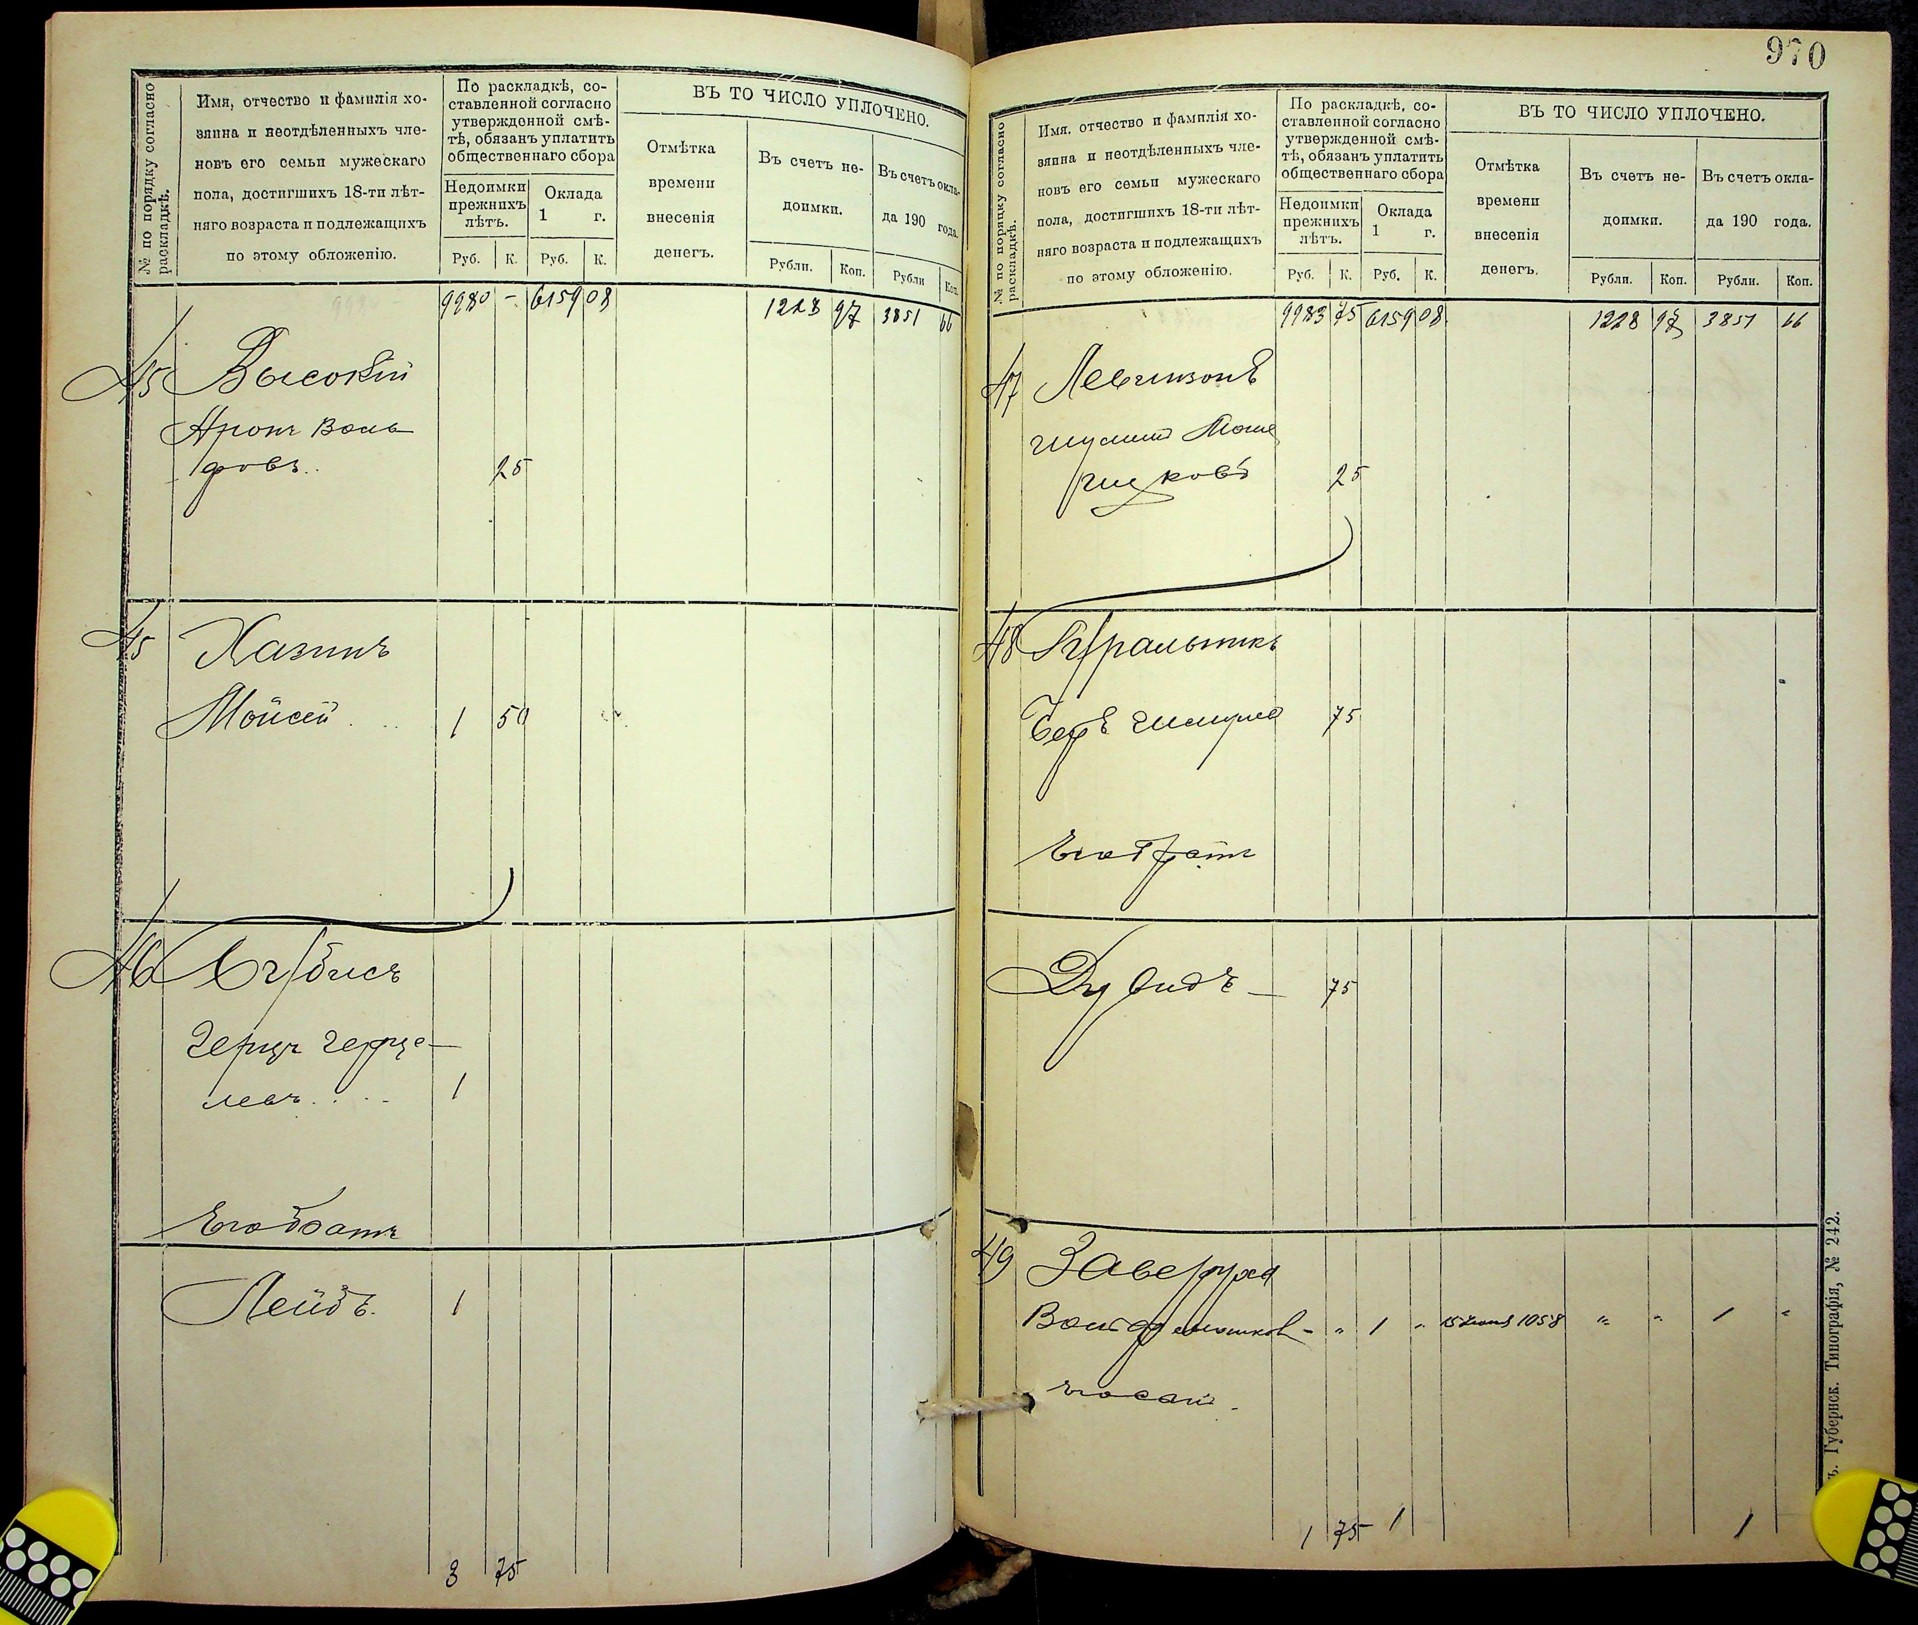 970
№ по порядку согласно раскладкѣ.
Имя, отчество и фамилія хо-
зяина и неотдѣленныхъ чле-
новъ его семьи мужескаго
пола, достигшихъ 18-ти лѣт-
няго возраста и подлежащихъ
по этому обложенію.
По раскладкѣ, со-
ставленной согласно
утвержденной смѣ-
тѣ, обязанъ уплатить
общественнаго сбора
Недоимки
прежнихъ
лѣтъ.
Оклада
1 г.
Руб. К. Руб. К.
ВЪ ТО ЧИСЛО УПЛОЧЕНО.
Отмѣтка
времени
внесенія
денегъ.
Въ счетъ не-
доимки.
Въ счетъ окла-
да 190 года.
Рубли. Коп. Рубли Коп.
9980 - 6159 08 1228 97 3851 66
45 Высокій
Аронъ Воль
фовъ..
25
45 Хазинъ
Мойсей . . . 1 50
46
Герцъ Герце-
левъ . . . . 1
Его братъ
Лейбъ. 1
3 75
№ по порядку согласно раскладкѣ.
Имя. отчество и фамилія хо-
зяина и неотдѣленныхъ чле-
новъ его семьи мужескаго
пола, достигшихъ 18-ти лѣт-
няго возраста и подлежащихъ
по этому обложенію.
По раскладкѣ, со-
ставленной согласно
утвержденной смѣ-
тѣ, обязанъ уплатить
общественнаго сбора
Недоимки
прежнихъ
лѣтъ.
Оклада
1 г.
Руб. К. Руб. К.
ВЪ ТО ЧИСЛО УПЛОЧЕНО.
Отмѣтка
времени
внесенія
денегъ.
Въ счетъ не-
доимки.
Въ счетъ окла-
да 190 года.
Рубли. Коп. Рубли. Коп.
9983 75 6159 08 1228 97 3851 66
47 Левинзонъ
25
48
Беръ 75
Его братъ
Дувидъ — 75
49 Заверуха
" 1 " 1058 " " 1 "
1 75 1 1
Губернск. Типографія, № 242.